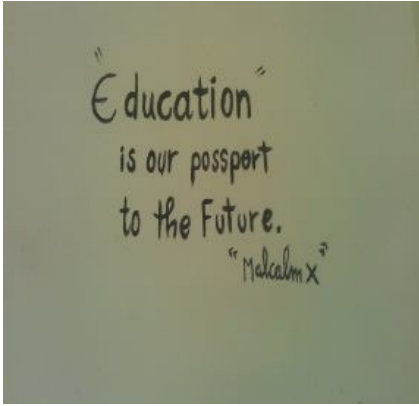 "Education"
is our possport
to the Future.
"Malcalm X"